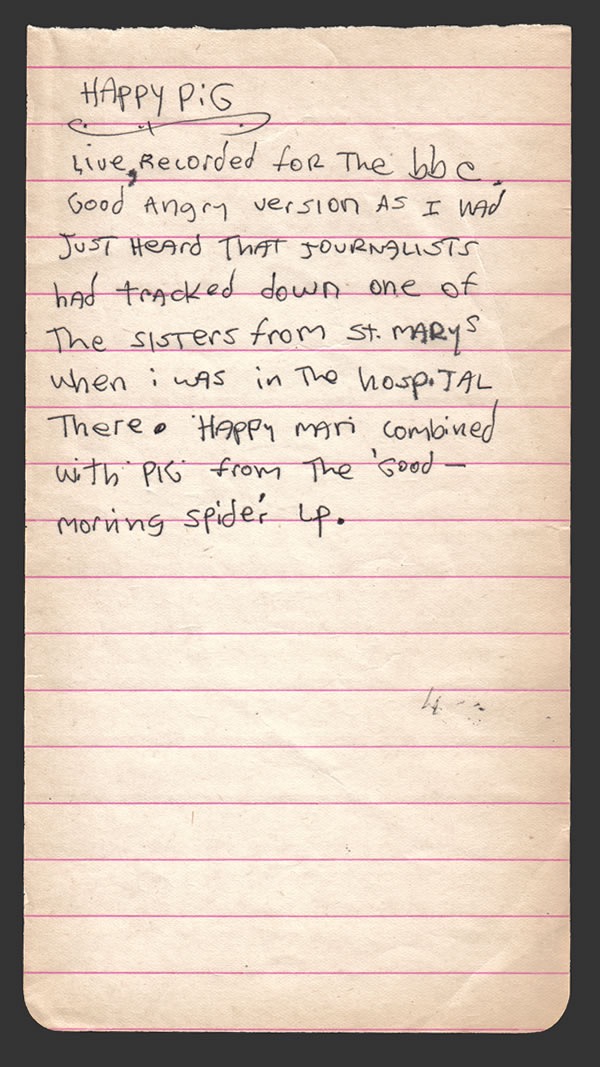 HAPPY PiG
Live, Recorded foR The bbc.
Good Angry version As I had
Just Heard THAT JOURNALISTS
had trAcked down one of
The SISTERS from St. MARYS
when i wAS in The hospiTAL
There. HAPPY MAN combined
with 'PIG' from The 'Good –
morning spider' Lp.
4